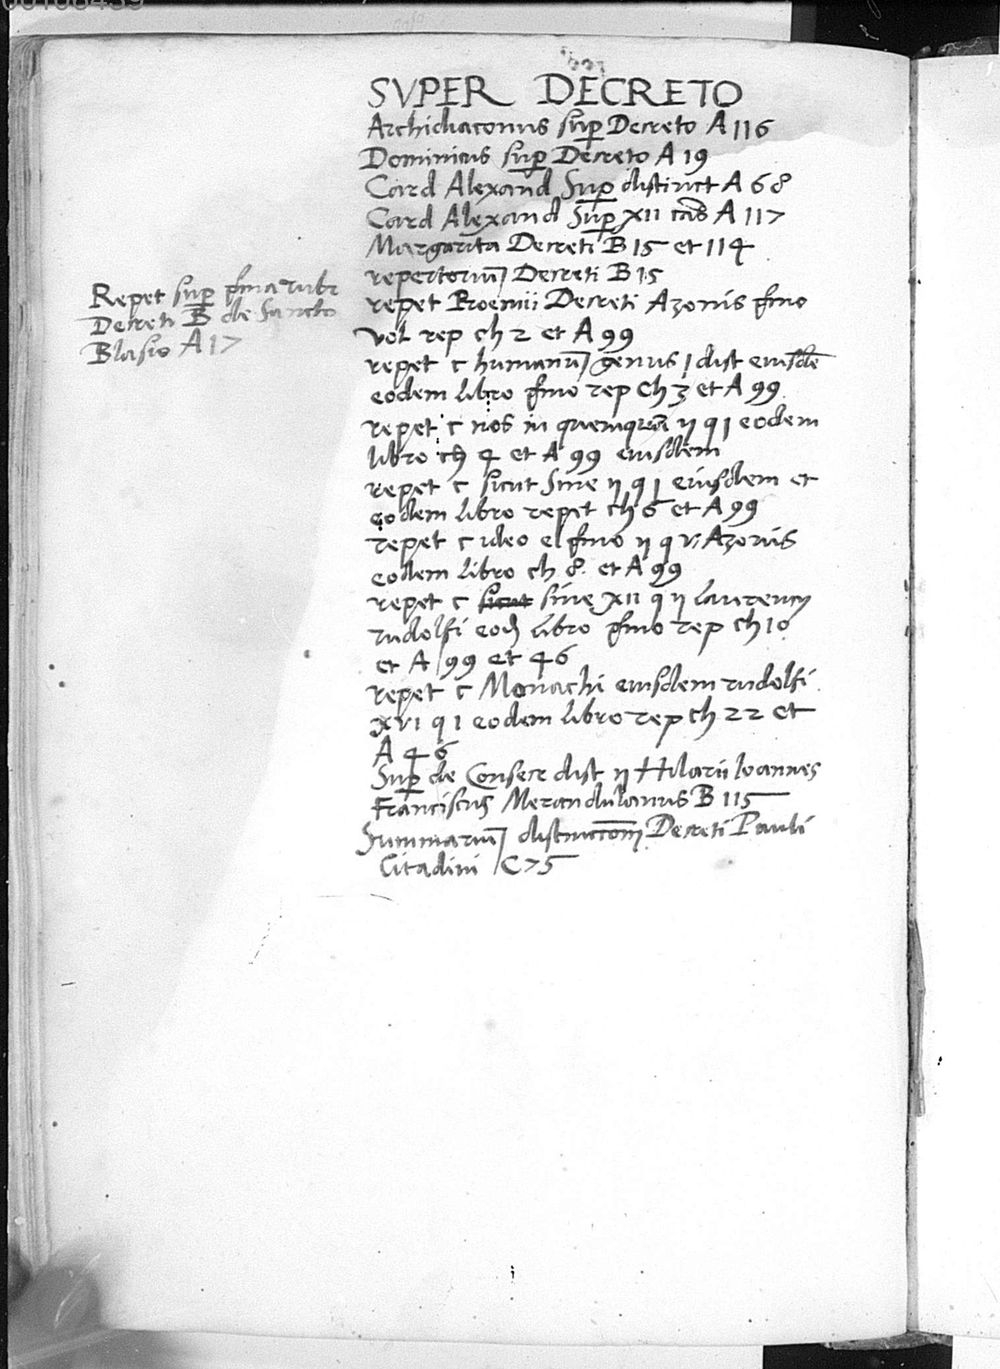 SVPER DECRETO
Archidiaconus sup Decreto A 116
Dominicus sup Decreto A 19
Card Alexand Sup distinct A 68
Card Alexand Sup XII cas A 117
Margarita Decreti B 15 et 114
repertoriu Decreti B 15
repet Proemii Decreti Azonis pmo
vol rep ch 2 et A 99
repet c humanu genus 1 dist eiusde
eodem libro pmo rep ch 3 et A 99
repet c nos in quemqua ii q 1 eodem
libro ch 4 et A 99 eiusdem
repet c sicut sine ii q 1 eiusdem et
eodem libro repet ch 6 et A 99
repet c ideo el pmo ii q vi Azonis
eodem libro ch 8. et A 99
repet c sicut sine XII q ii laurencij
rudolfi eod libro pmo rep ch 10
et A 99 et 46
repet c Monachi eiusdem rudolfi
xvi q 1 eodem libro rep ch 22 et
A 46
Sup de Consecr dist ii Hilarii Ioannes
Franciscus Merandulanus B 115
Summariu distinccom Decreti Pauli
Citadini C 75
Repet sup pma rubr
Decreti B de Sancto
Blasio A 17